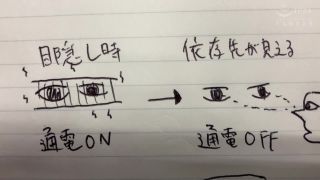 目隠し時
依存先が見える
通電ON
通電OFF